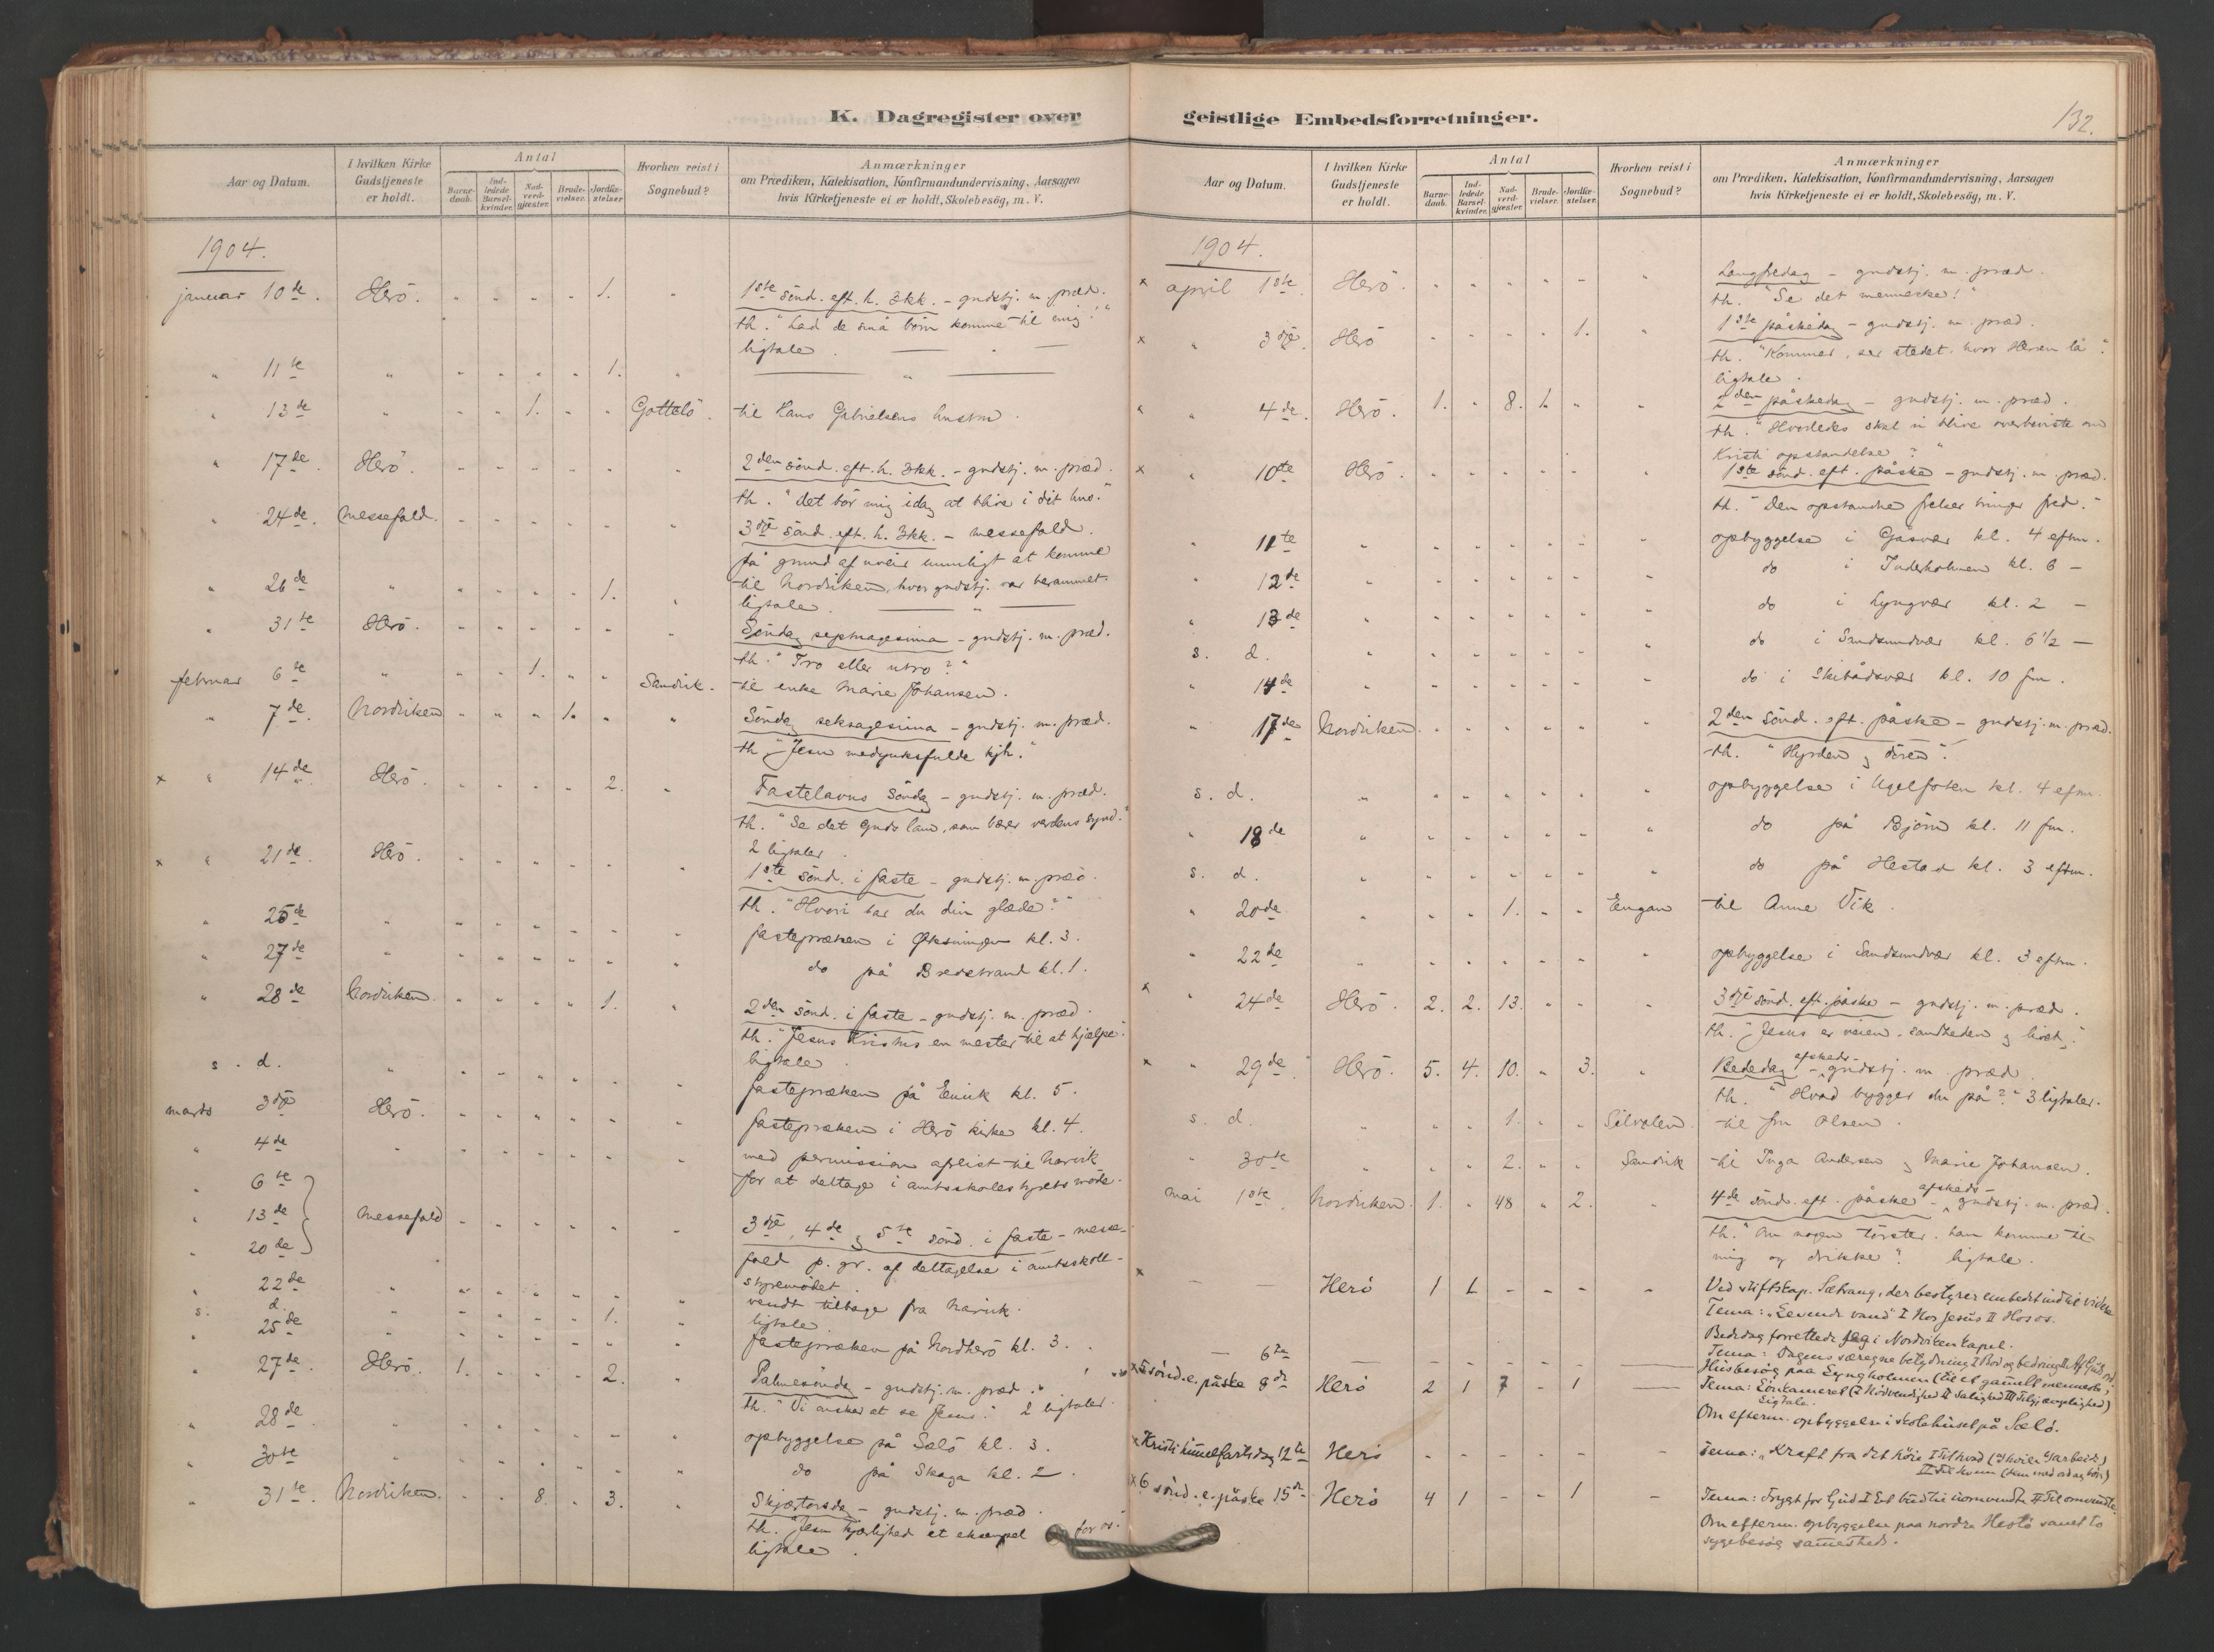 K. Dagregister over
Aar og Datum.
I hvilken Kirke Gudstjeneste er holdt.
Antal
Barne-daab.
Ind-ledede Barsel-kvinder.
Nad-verd-gjæster.
Brude-vielser.
Jordfæ-stelser
Hvorhen reist i Sognebud?
Anmærkninger
om Prædiken, Katekisation, Konfirmandundervisning, Aarsagen
hvis Kirketjeneste ei er holdt, Skolebesög, m. V.
1904.
januar 10de. Herö. " " " " 1. " 1ste sönd. eft. h. 3kk. - gudstj. m. præd.
th. "Lad de små börn komme til mig!"
ligtale.
" 11te " " " " " 1. "
" 13de " " " 1. " " Gåttelö. til Hans Gabrielsens hustru.
" 17de. Herö. " " " " " " 2den sönd. eft. h. 3kk. - gudstj. m. præd.
th. "Det bör mig idag at blive i dit hus."
" 24de. Messefald. " " " " " " 3dje sönd. eft. h. 3kk. - messefald
på grund af uveir umuligt at komme
til Nordviken, hvor gudstj. var berammet.
" 26de " " " " " 1. " ligtale.
" 31te Herö. " " " " " " Söndag septuagesima - gudstj. m. præd.
th. "Tro eller utro?"
februar 6te " " " 1. " " Sandvik. til enke Marie Johansen.
" 7de. Nordviken " " " 1. " " Söndag seksagesima - gudstj. m. præd.
th. "Jesu medynksfulde hjh."
x " 14de Herö. " " " " 2. " Fastelavns söndag - gudstj. m. præd.
th. "Se det Guds lam, som bærer verdens synd."
2 ligtaler.
x " 21de. Herö. " " " " " " 1ste sönd. i faste - gudstj. m. præd.
th. "Hvori har du din glæde?"
" 25de " " " " " " " fastepræken i Øksningen kl. 3.
" 27de " " " " " " " do på Bredstrand kl. 1.
" 28de Nordviken. " " " " 1. " 2den sönd. i faste - gudstj. m. præd.
th. "Jesus Kristus en mester til at hjælpe."
ligtale.
s. d. " " " " " " " fastepræken på Envik kl. 5.
marts 3dje Herö. " " " " " " fastepræken i Herö kirke kl. 4.
" 4de " " " " " " " med permission afreist til Narvik
for at deltage i amtsskolestyrets möde.
" 6te
" 13de Messefald " " " " " " 3dje, 4de og 5te sönd. i faste - messe-
" 20de fald p. gr. af deltagelse i amtsskole-
styremödet.
" 22de " " " " " " " vendt tilbage fra Narvik.
s. d. " " " " " 1. " ligtale.
" 25de " " " " " " " fastepræken på Nordherö kl. 3.
" 27de. Herö. 1. " " " 2. " Palmesöndag - gudstj. m. præd.
th. "Vi önsker at se Jesus." 2 ligtaler.
" 28de. " " " " " " " opbyggelse på Sælö kl. 3.
" 30te " " " " " " " do på Skaga kl. 2.
" 31te. Nordviken. " " 8. " 3. " Skjærtorsdag - gudstj. m. præd.
th. "Jesu kjærlighed et eksempel for os."
ligtale.
geistlige Embedsforretninger.
132.
Aar og Datum.
I hvilken Kirke Gudstjeneste er holdt.
Antal
Barne-daab.
Ind-ledede Barsel-kvinder.
Nad-verd-gjæster.
Brude-vielser.
Jordfæ-stelser.
Hvorhen reist i Sognebud?
Anmærkninger
om Prædiken, Katekisation, Konfirmandundervisning, Aarsagen
hvis Kirketjeneste ei er holdt, Skolebesög, m. V.
1904.
x april 1ste. Herö. " " " " " " Langfredag - gudstj. m. præd.
th. "Se det menneske!"
x " 3dje. Herö " " " " 1. " 1ste påskedag - gudstj. m. præd.
th. "Kommer, ser stedet, hvor Herren lå."
ligtale.
x " 4de. Herö. 1. " 8. 1. " " 2den påskedag - gudstj. m. præd.
th. "Hvorledes skal vi blive overbeviste om
Kristi opstandelse?"
x " 10te Herö. " " " " " " 1ste sönd. eft. påske - gudstj. m. præd.
th. "Den opstandne frelser bringer fred."
" 11te " " " " " " " opbyggelse i Gåsvær kl. 4 eftm.
" 12de " " " " " " " do i Inderholmen kl. 6 -
" 13de " " " " " " " do i Lyngvær kl. 2 -
s. d. " " " " " " " do i Sandsundvær kl. 6 1/2 -
" 14de " " " " " " " do i Skibådsvær kl. 10 fm.
" 17de Nordviken. " " " " " " 2den sönd. eft. påske - gudstj. m. præd.
th. "Hyrden og dören."
s. d. " " " " " " " opbyggelse i Agelfoten kl. 4 eftm.
" 18de " " " " " " " do på Björn kl. 11 fm.
s. d. " " " " " " " do på Hestad kl. 3 eftm.
" 20de " " " 1. " " Engan til Anne Vik.
" 22de " " " " " " " opbyggelse i Sandsundvær kl. 3 eftm.
x " 24de Herö. 2. 2. 13. " " " 3dje sönd. eft. påske - gudstj. m. præd.
th. "Jesus er veien, sandheden og livet."
x " 29de Herö. 5. 4. 10. " 3. " Bededag - afskeds-gudstj. m. præd.
th. "Hvad bygger du på?" 3 ligtaler.
s. d. " " " 1. " " Silvalen. til fru Olsen.
" 30te " " " 2. " " Sandvik til Inga Andersen og Marie Johansen.
mai 1ste. Nordviken. 1. " 48 " 2. " 4de sönd. eft. påske - afskeds-gudstj. m. præd.
th. "Om nogen törster, han komme til
mig og drikke." ligtale.
x — — Herö 1 1 - - - - Ved stiftskap. Sætrang, der bestyrer embedet indtil videre
Tema: "Levende vand" I Hos Jesus II Hos os.
Bededag forrettede jeg i Nordviken kapel.
— 6te — - - - - - — Tema: Dagens særegne betydning I Bod og bedring II Af Guds ord.
Husbesög paa Lyngholmen (til et gamelt menneske;
x 5 sönd. e. påske 8de Herö 2 1 7 - 1 — Tema: Lönkameret (I Nödvendighed II Salighed III Tilgjængelighed)
Ligtale.
Om efterm. opbyggelse i skolehuset på Sælö.
x Kristi himmelfartsdag 12te Herö - - - - - - Tema: "Kraft fra det höie I Til hvad (I hvile II arbeide)
II Til hvem
x 6 sönd. e. påske 15de Herö 4 1 - - 1 - Tema: Frygt for Gud I Et bud til uomvendte II Til omvendte.
Om efterm. opbyggelse paa nordre Hestö samt to
sygebesög samesteds.